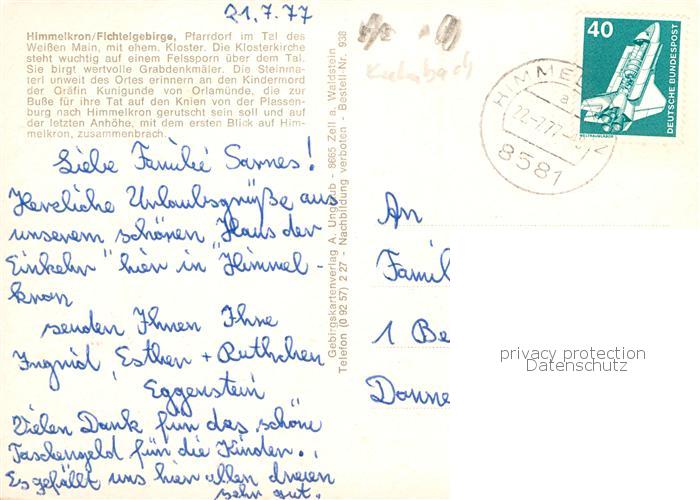 21.7.77
Himmelkron/Fichtelgebirge, Pfarrdorf im Tal des
Weißen Main, mit ehem. Kloster. Die Klosterkirche
steht wuchtig auf einem Felssporn über dem Tal.
Sie birgt wertvolle Grabdenkmäler. Die Steinmar-
terl unweit des Ortes erinnern an den Kindermord
der Gräfin Kunigunde von Orlamünde, die zur
Buße für ihre Tat auf den Knien von der Plassen-
burg nach Himmelkron gerutscht sein soll und auf
der letzten Anhöhe, mit dem ersten Blick auf Him-
melkron, zusammenbrach.
Liebe Familie Sannes!
Herzliche Urlaubsgrüße aus
unserem schönen "Haus der
Einkehr" hier in "Himmel-
kron
senden Ihnen Ihre
Ingrid, Esther + Ruthchen
Eggenstein
Vielen Dank für das schöne
Taschengeld für die Kinder..
Es gefällt uns hier allen dreien
sehr gut.
Gebirgskartenverlag A. Unglaub - 8665 Zell a. Waldstein
Telefon (0 92 57) 2 27 - Nachbildung verboten - Bestell-Nr. 938
Kulmbach
HIMMEL
22.-7.77
8581
40
DEUTSCHE BUNDESPOST
WELTRAUMLABOR
An
Famil
1 Be
Donne
privacy protection
Datenschutz